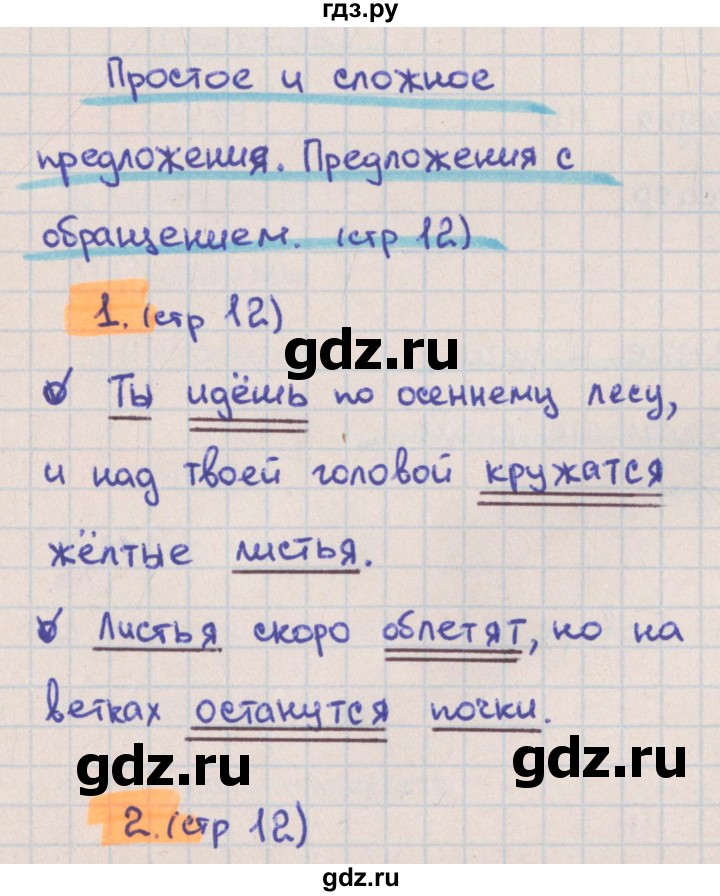 гдз.ру
Простое и сложное
предложения. Предложения с
обращением. (стр 12)
1. (стр 12)
gdz.ru
Ты идёшь по осеннему лесу,
и над твоей головой кружатся
жёлтые листья.
Листья скоро облетят, но на
ветках останутся почки.
gdz.ru
gdz.ru
2. (стр 12)
gdz.ru